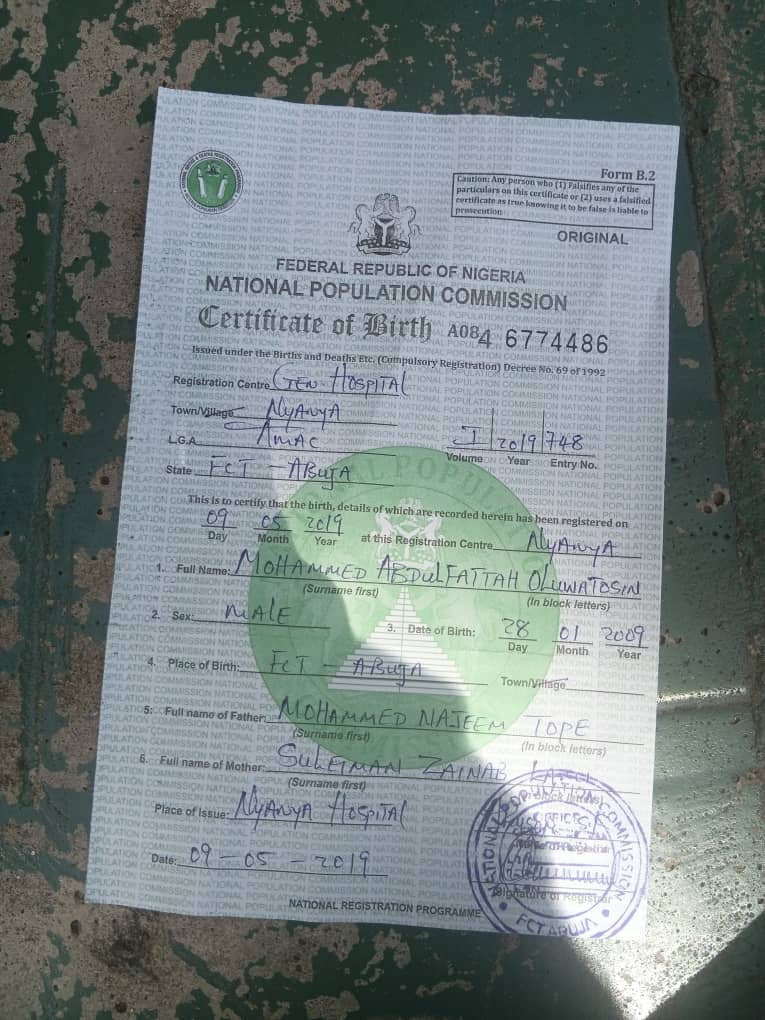 Form B.2
Caution: Any person who (1) Falsifies any of the
particulars on this certificate or (2) uses a falsified
certificate as true knowing it to be false is liable to
prosecution
ORIGINAL
FEDERAL REPUBLIC OF NIGERIA
NATIONAL POPULATION COMMISSION
Certificate of Birth A084 6774486
Issued under the Births and Deaths Etc. (Compulsory Registration) Decree No. 69 of 1992
Registration Centre GEN HOSPITAL
Town/Village NYANYA
L.G.A. AMAC I 2019 748
Volume Year Entry No.
State FCT - ABUJA
This is to certify that the birth, details of which are recorded herein has been registered on
09 05 2019 at this Registration Centre NYANYA
Day Month Year
1. Full Name: MOHAMMED ABDULFATTAH OLUWATOSIN
(Surname first) (In block letters)
2. Sex: MALE 3. Date of Birth: 28 01 2009
Day Month Year
4. Place of Birth: FCT - ABUJA Town/Village
5: Full name of Father: MOHAMMED NAJEEM TOPE
(Surname first) (In block letters)
6. Full name of Mother: SULEIMAN ZAINAB
(Surname first) (In block letters)
Place of Issue: NYANYA HOSPITAL
Date: 09-05-2019
Name of Registrar
Signature of Registrar
NATIONAL POPULATION COMMISSION
FCT ABUJA
NATIONAL REGISTRATION PROGRAMME